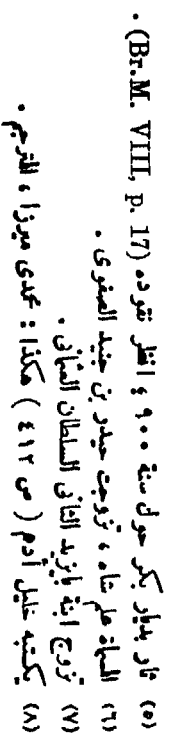 (٥) ثار بديار بكر حول سنة ٩٠٠ ؛ انظر نقوده (Br.M. VIII, p. 17) .
(٦) المسماة علم شاه ، تزوجت حيدر بن جنيد الصفوى .
(٧) تزوج ابنة بايزيد الثانى السلطان العثمانى .
(٨) يكتبه خليل أدم ( ص ٤١٢ ) هكذا : محمدى ميرزا ، المترجم .